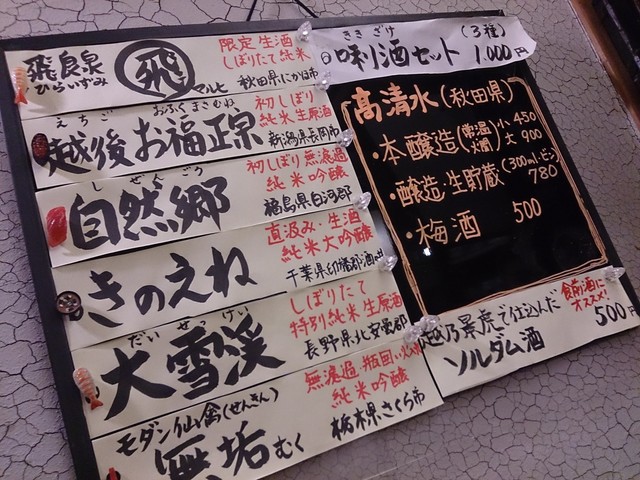 飛良泉
ひらいずみ
飛
マルヒ
限定 生酒
しぼりたて純米
秋田県にかほ市
えちご
おふくまさむね
越後お福正宗
初しぼり
純米生原酒
新潟県長岡市
しぜんごう
自然郷
初しぼり無濾過
純米吟醸
福島県白河郡
きのえね
直汲み・生酒
純米大吟醸
千葉県印旛郡酒々井
だいせっけい
大雪渓
しぼりたて
特別純米生原酒
長野県北安曇郡
モダン仙禽(せんきん)
無垢むく
無濾過・瓶囲い火入
純米吟醸
栃木県さくら市
ききざけ
(3種)
唎酒セット
1,000円
高清水(秋田県)
・本醸造(常温 火燗) 小 450
大 900
・醸造・生貯蔵(300ml・ビン)
780
・梅酒 500
越乃景虎で仕込んだ
ソルダム酒
食前酒に
オススメ!
500円